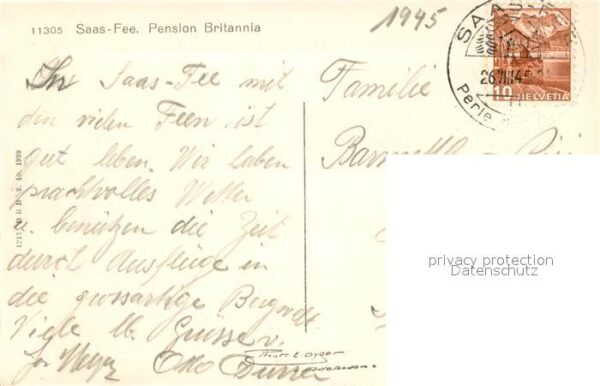 11305 Saas-Fee. Pension Britannia
1945
SAAS-FEE
26.VIII.45
Perle
10 HELVETIA
In Saas-Fee mit
den vielen Feen ist
gut leben. Wir haben
prachtvolles Wetter
u. benützen die Zeit
durch Ausflüge in
die grossartige Bergwelt
Viele lb. Grüsse v.
Otto Durrer
Familie
privacy protection
Datenschutz